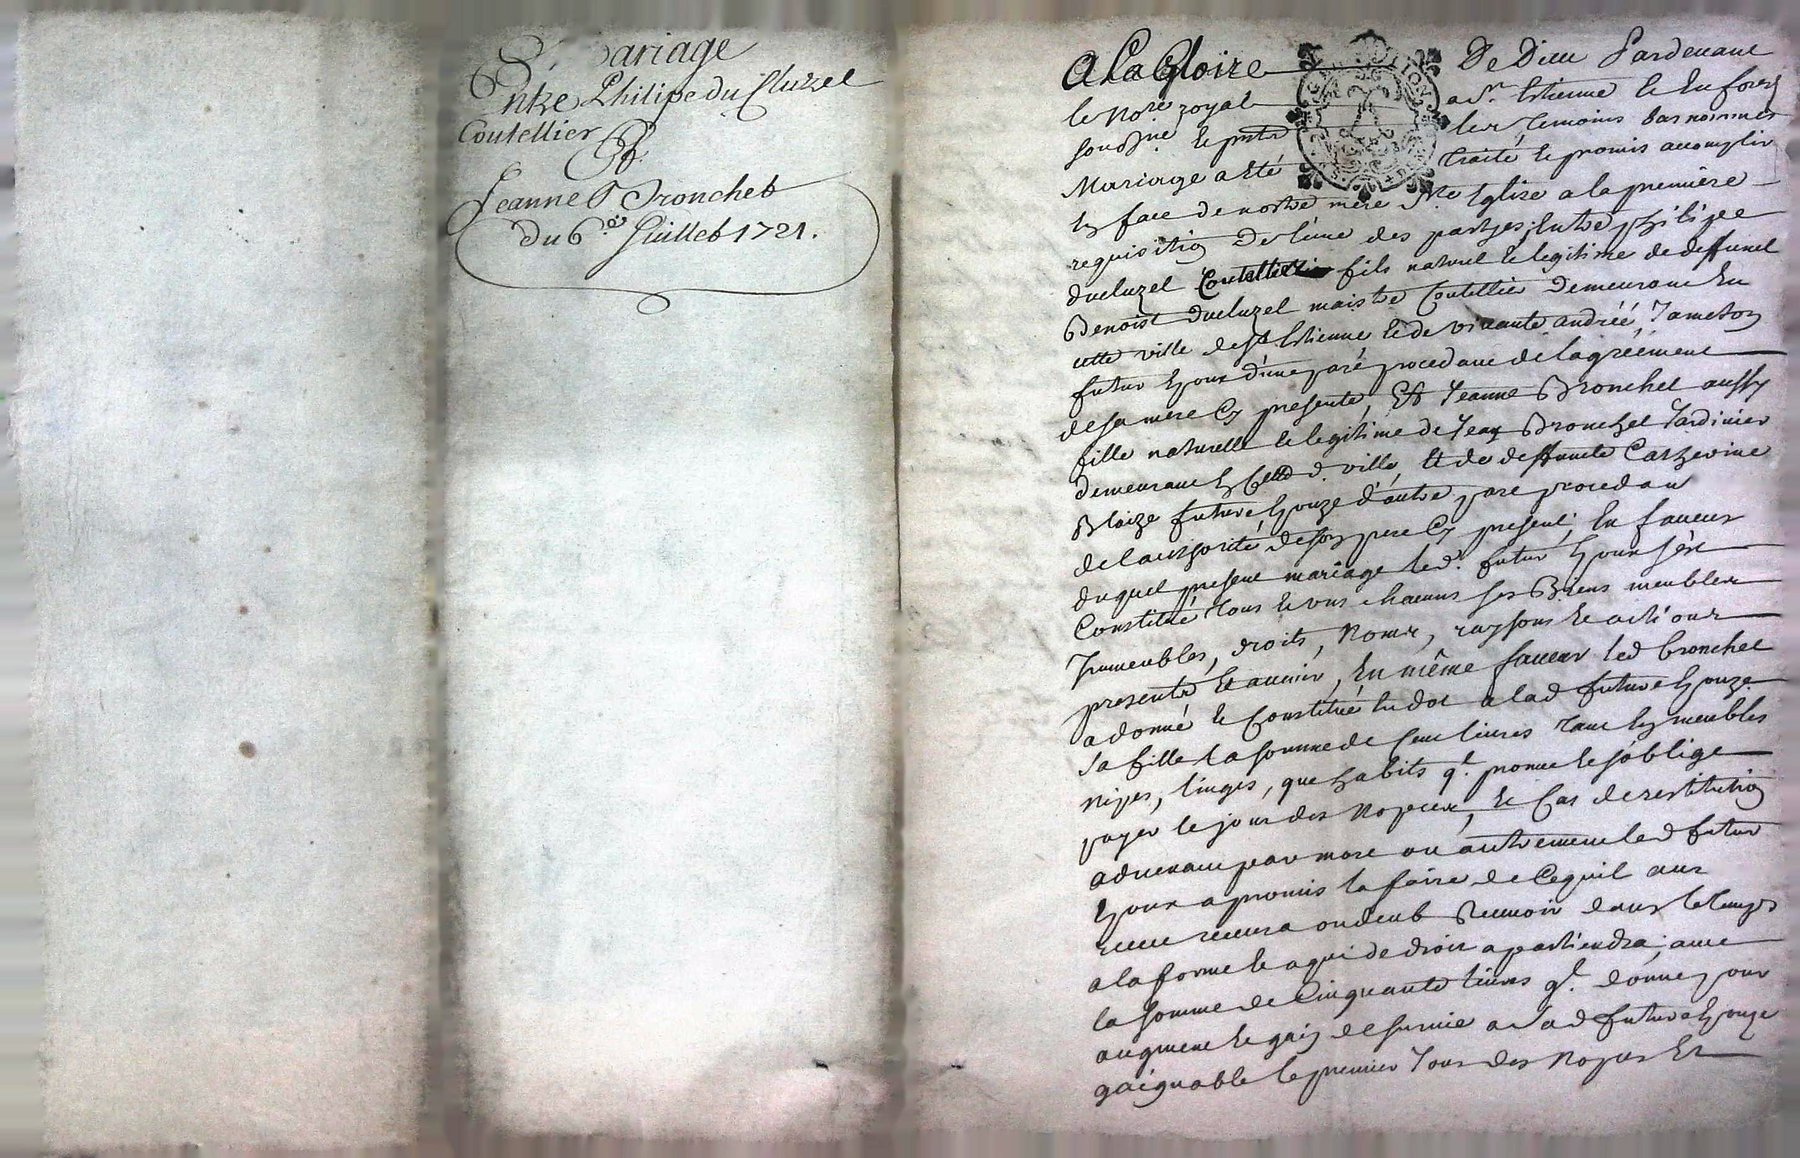 Mariage
Entre Philipe du Cluzel
Coutellier
Et
Jeanne Bronchet
du 6e. Juillet 1721.
A La Gloire De Dieu Pardevant
le Nore. royal a St. Estienne en forez
soussigné et pnts les temoins bas nommés
Mariage a eté traité et promis accomplir
en face de nostre mere Ste Eglise a la premiere
requisition De lune des parties, Entre philipe
ducluzel Coutellier fils naturel et legitime de deffunct
Benoist ducluzel maistre Coutellier Demeurant En
cette ville de St Estienne et de vivante andréé Jameton
futur Epoux d'une part procedant de l'agréement
de sa mere Cy presente, Et Jeanne Bronchet aussy
fille naturelle et legitime de Jean Bronchet Jardinier
demeurant En d. ville, et de deffuncte Catherine
Blaize future Epouze d'autre part procedant
de l'authorité de son pere Cy present, En faveur
duquel present mariage led. futur Epoux s'est
Constitué tous et uns chacuns ses Biens meubles
Immeubles, droits, Noms, raysons et actions
presents et avenir, En même faveur led bronchet
a donné et Constitué En dot a lad future Epouze
sa fille la somme de Cent livres tant En meubles
nipes, linges, que habits ql. promet et s'oblige
payer le jour des Nopces, et Cas de restitution
advenant par mort ou autrement led futur
Epoux a promis la faire de Cequil aura
receu ou deub Recevoir dans le temps
a la forme et a qui de droit apartiendra, avec
la somme de Cinquante livres ql. donne pour
augment et gain de survie a lad future Epouze
gaignable le premier Jour des Nopces Et